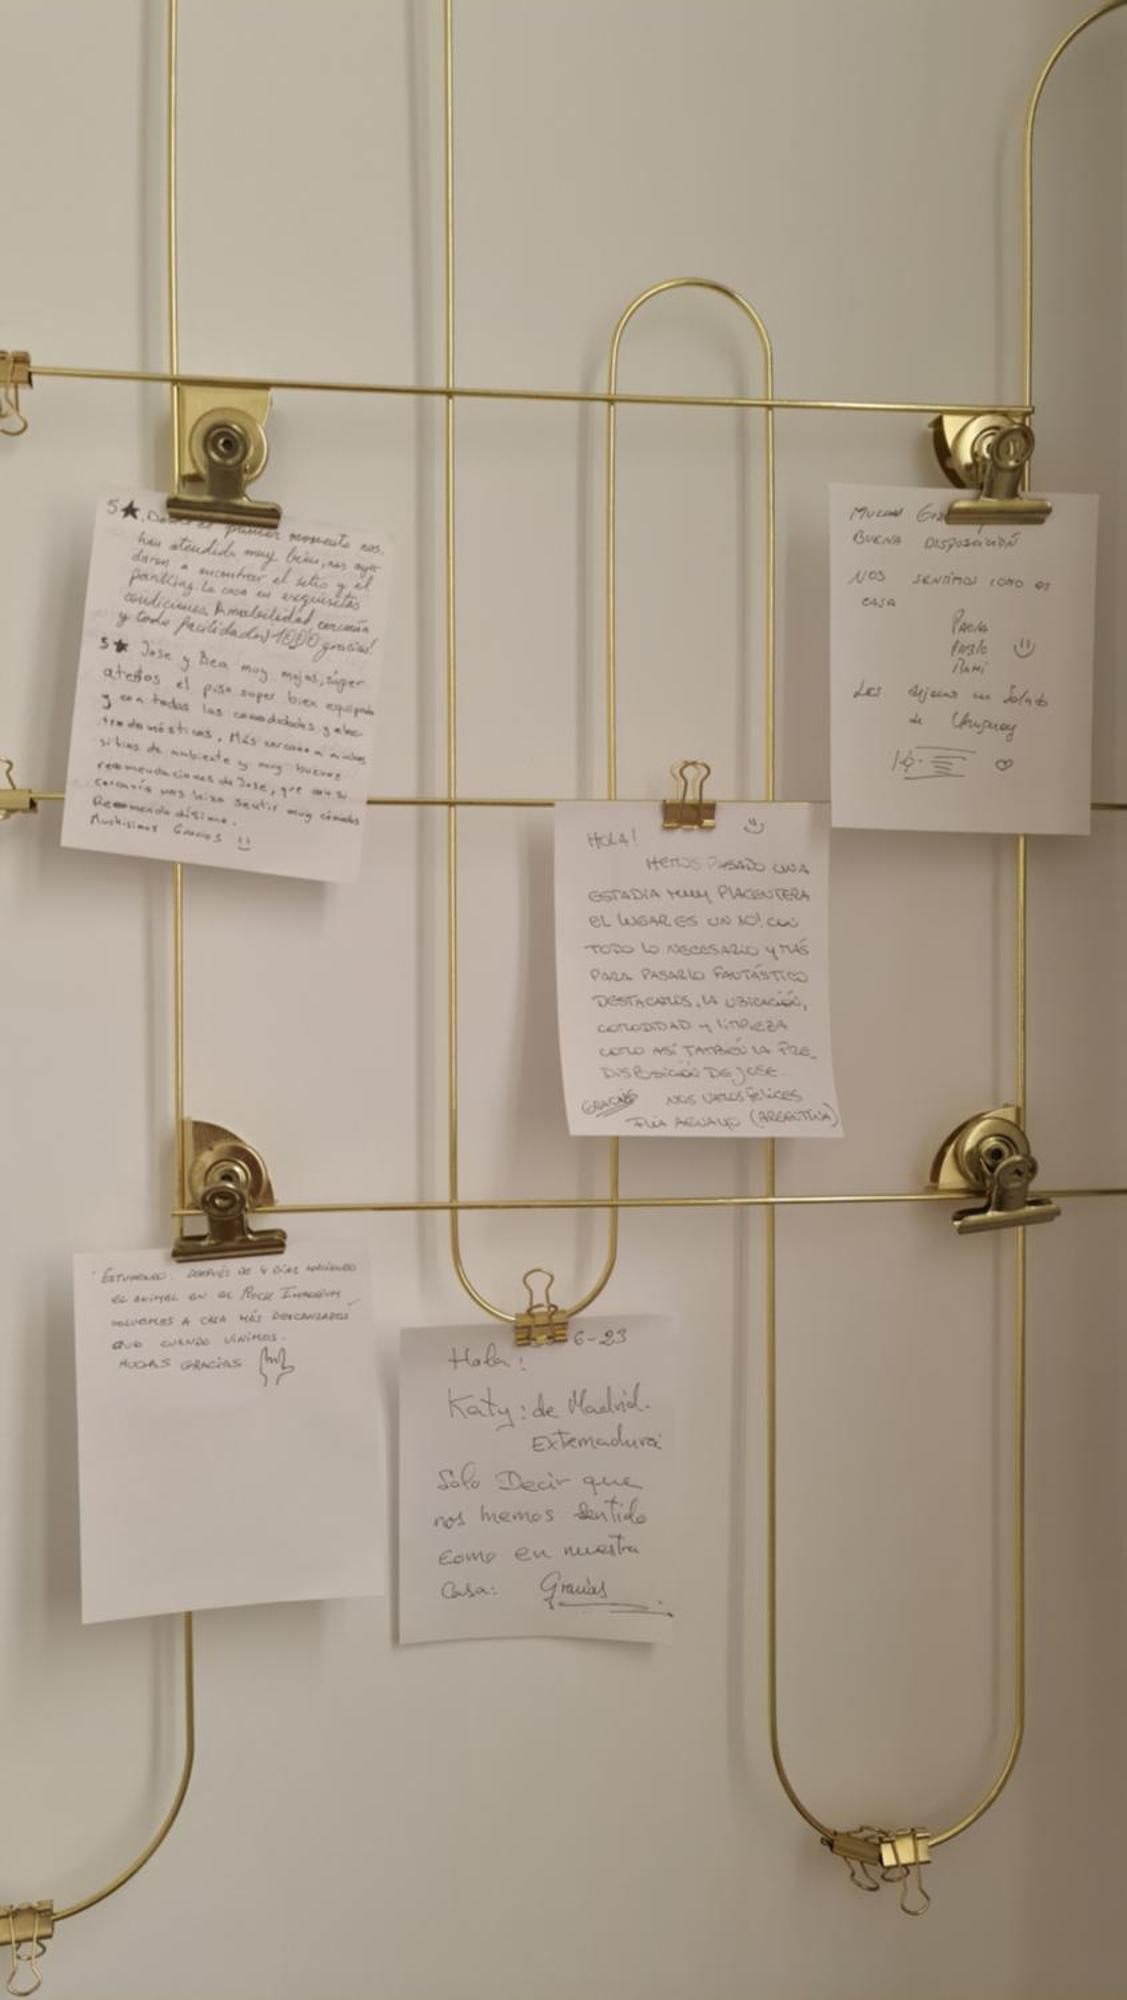 5★. Desde el primer momento nos
han atendido muy bien, nos ayu-
daron a encontrar el sitio y el
parking. La casa en exquisitas
condiciones. Amabilidad cercanía
y todo facilidades! 1000 gracias!
5★ Jose y Bea muy majos, súper
atentos el piso super bien equipado
y con todas las comodidades y elec-
trodomésticos. Más cercano a muchos
sitios de ambiente y muy buenas
recomendaciones de Jose, que con su
cercanía nos hizo sentir muy cómodos
Recomendadísimo.
Muchísimas Gracias
MUCHAS
BUENA DISPOSICIÓN
NOS SENTIMOS COMO EN
CASA
PAOLA
PABLO
Les dejamos un Saludo
de Uruguay
HOLA!
HEMOS PASADO UNA
ESTADÍA MUY PLACENTERA
EL LUGAR ES UN 10! CON
TODO LO NECESARIO Y MÁS
PARA PASARLO FANTÁSTICO
DESTACAMOS, LA UBICACIÓN,
COMODIDAD Y LIMPIEZA
COMO ASÍ TAMBIÉN LA PRE-
DISPOSICIÓN DE JOSE.
GRACIAS NOS VAMOS FELICES
FLIA AGUAYO (ARGENTINA)
ESTUPENDO. DESPUÉS DE 4 DÍAS HACIENDO
EL ANIMAL EN EL ROCK IMPERIUM
VOLVEMOS A CASA MÁS DESCANSADOS
QUE CUANDO VINIMOS.
MUCHAS GRACIAS
6-23
Hola:
Katy: de Madrid.
Extremadura
Sólo Decir que
nos hemos sentido
como en nuestra
Casa: Gracias